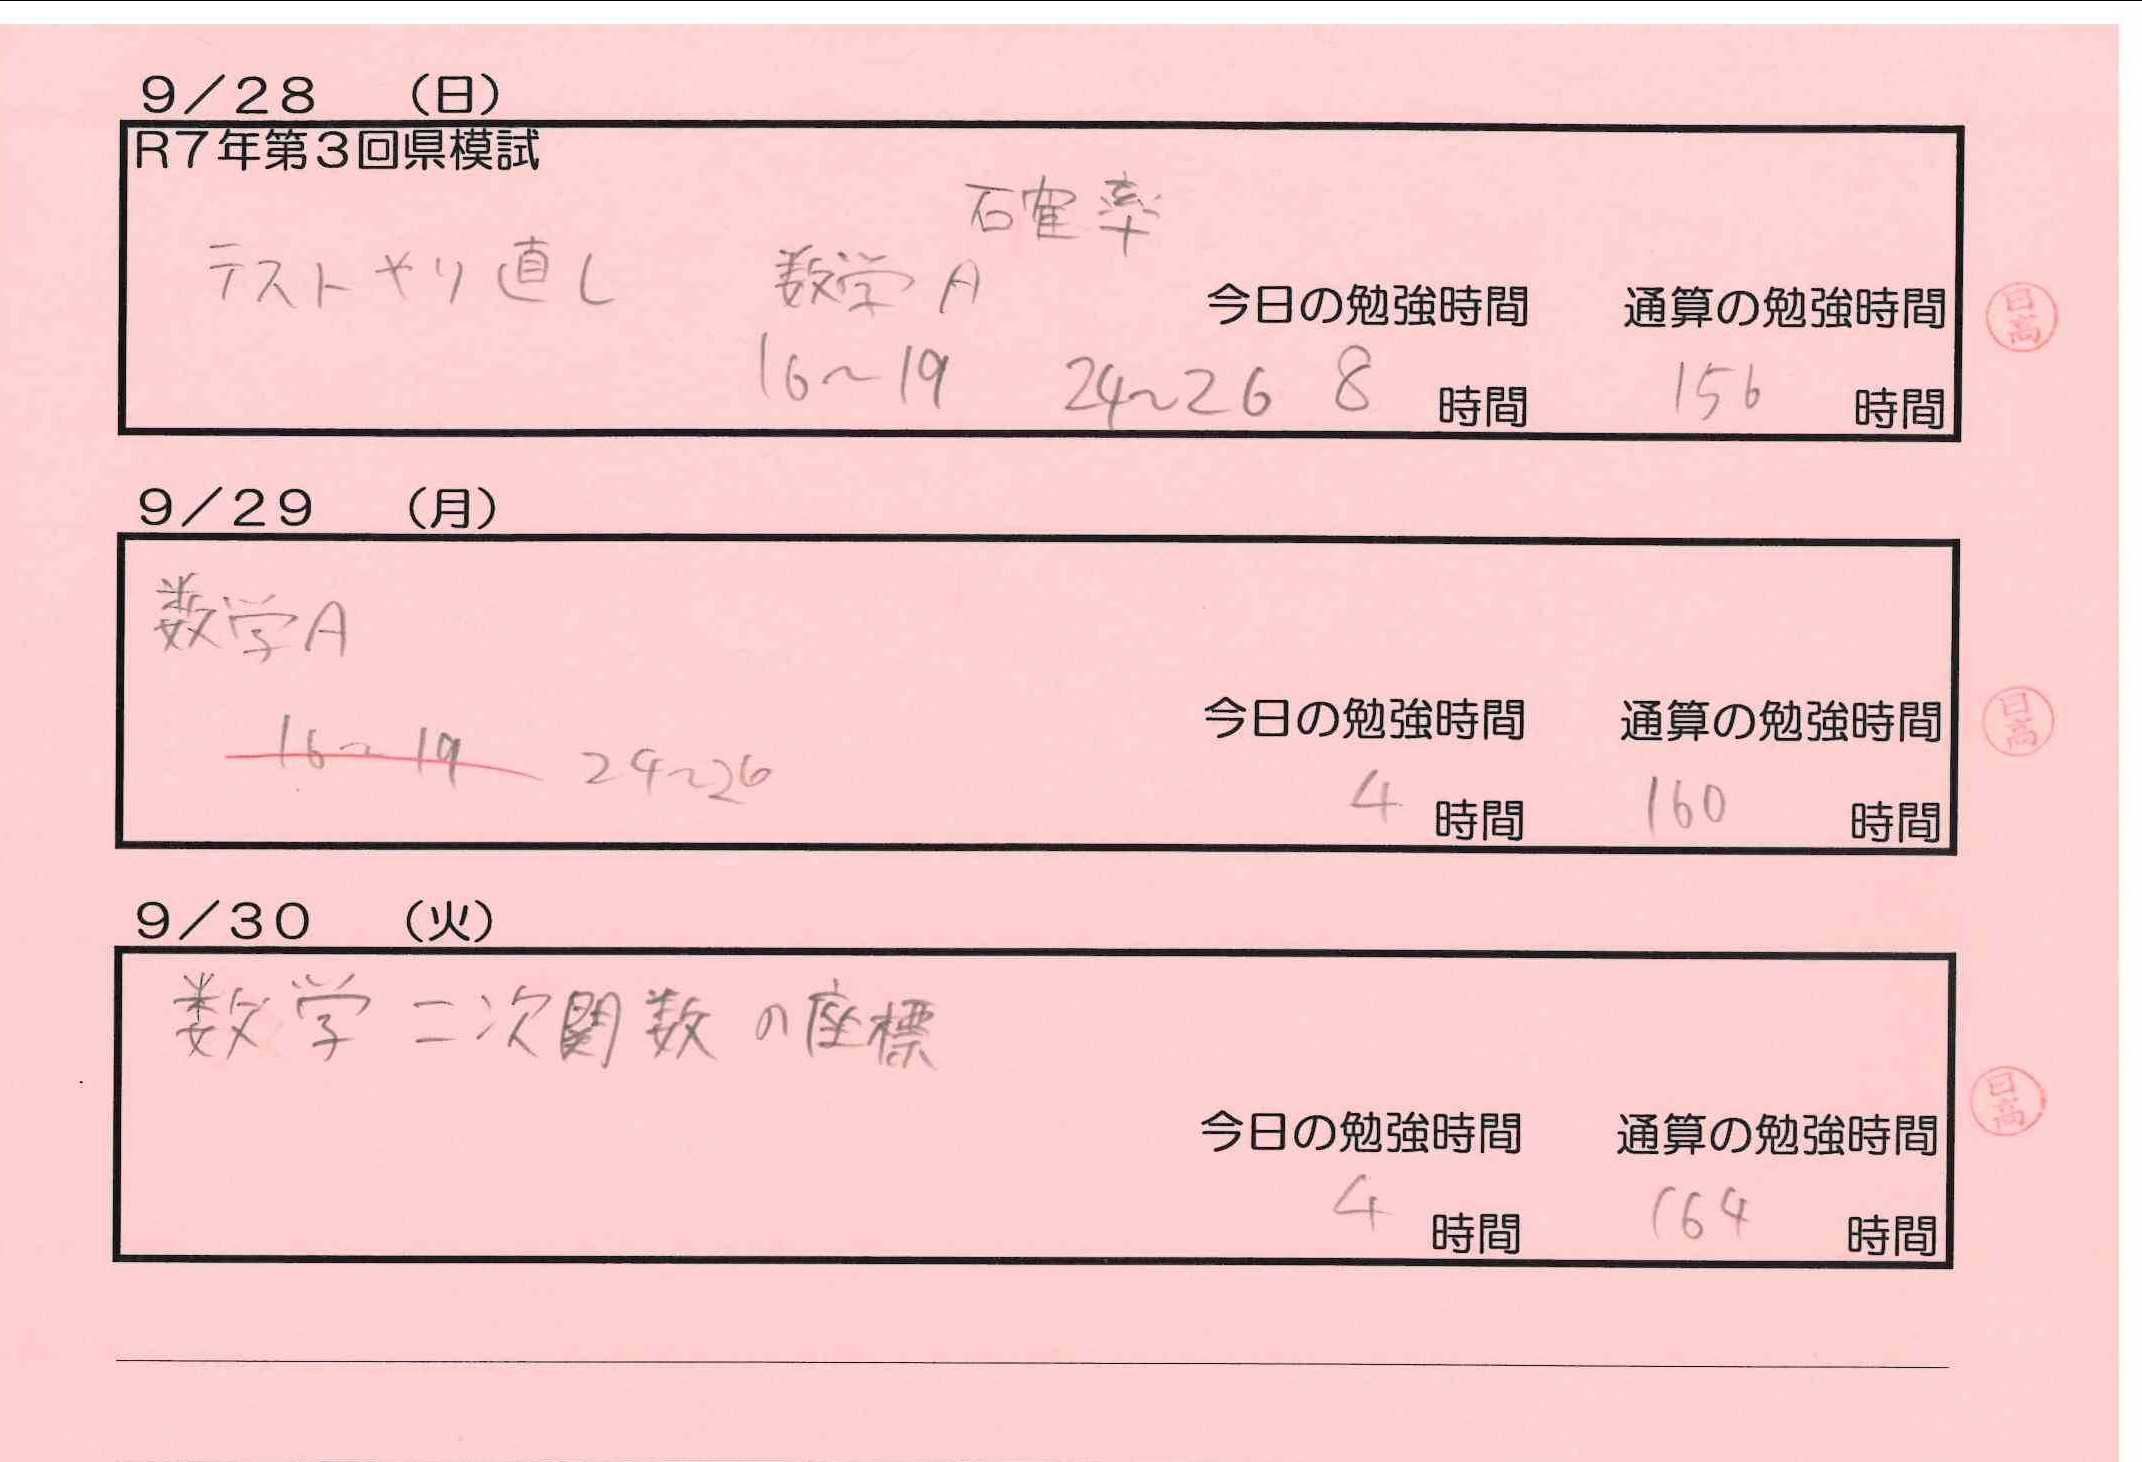 9/28 (日)
R7年第3回県模試
確率
テストやり直し 数学A
今日の勉強時間 通算の勉強時間
日高
16~19 24~26 8 時間 156 時間
9/29 (月)
数学A
今日の勉強時間 通算の勉強時間
日高
16~19 24~26 4 時間 160 時間
9/30 (火)
数学 二次関数の座標
今日の勉強時間 通算の勉強時間
日高
4 時間 164 時間